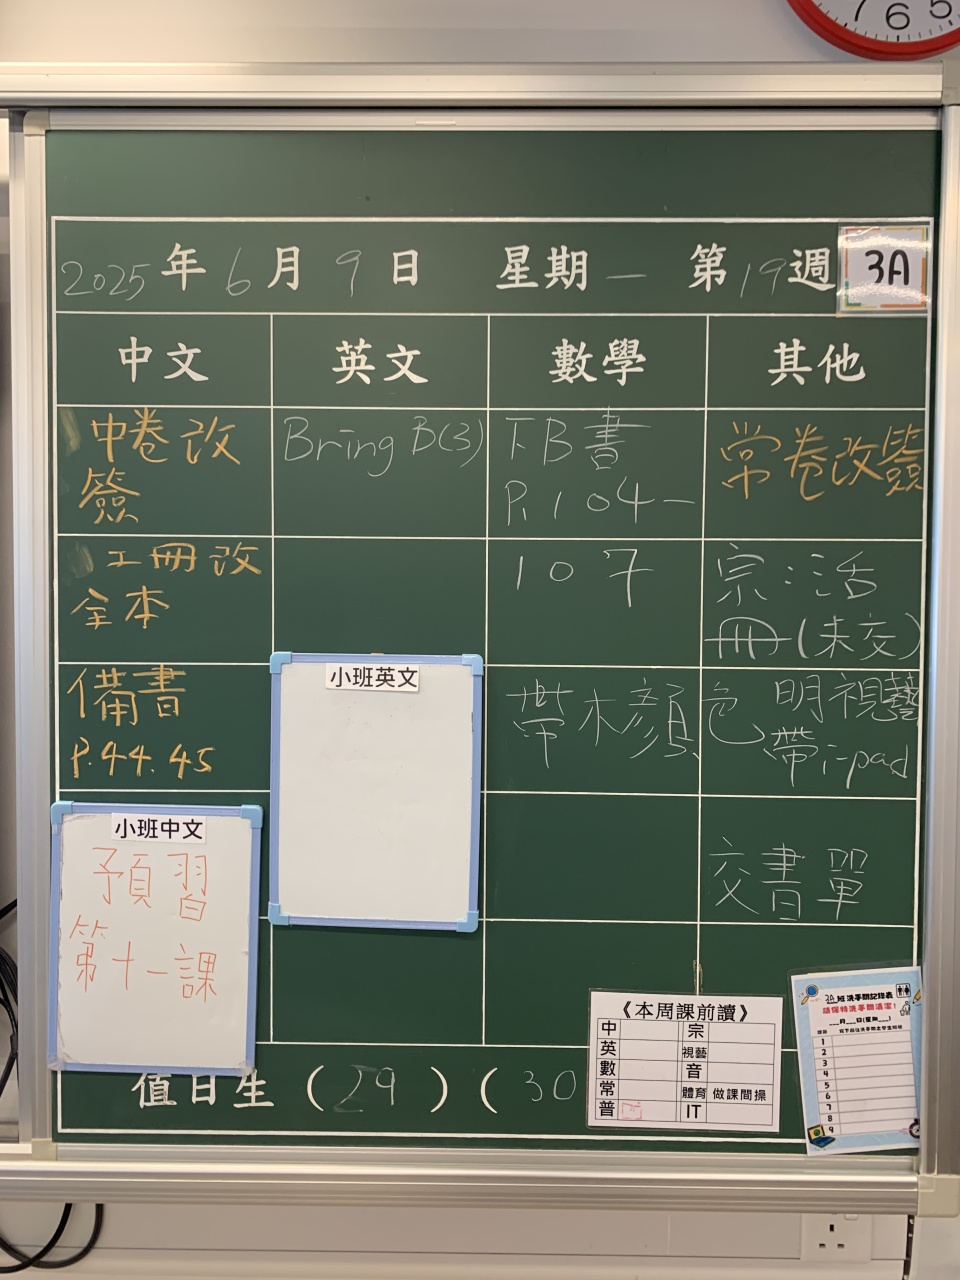 7 6 5
2025年6月9日 星期一 第19週 3A
中文 英文 數學 其他
中卷改
簽
工冊改
全本
備書
P.44.45
小班中文
預習
第十一課
Bring B(3)
小班英文
下B書
P.104-
107
帶木顏色
常卷改簽
宗:活
冊(未交)
明視藝
帶i-pad
交書單
值日生(29)(30
《本周課前讀》
中 宗
英 視藝
數 音
常 體育 做課間操
普 IT
3A班洗手間記錄表
請保持洗手間清潔!
__月__日(星期__)
1
2
3
4
5
6
7
8
9